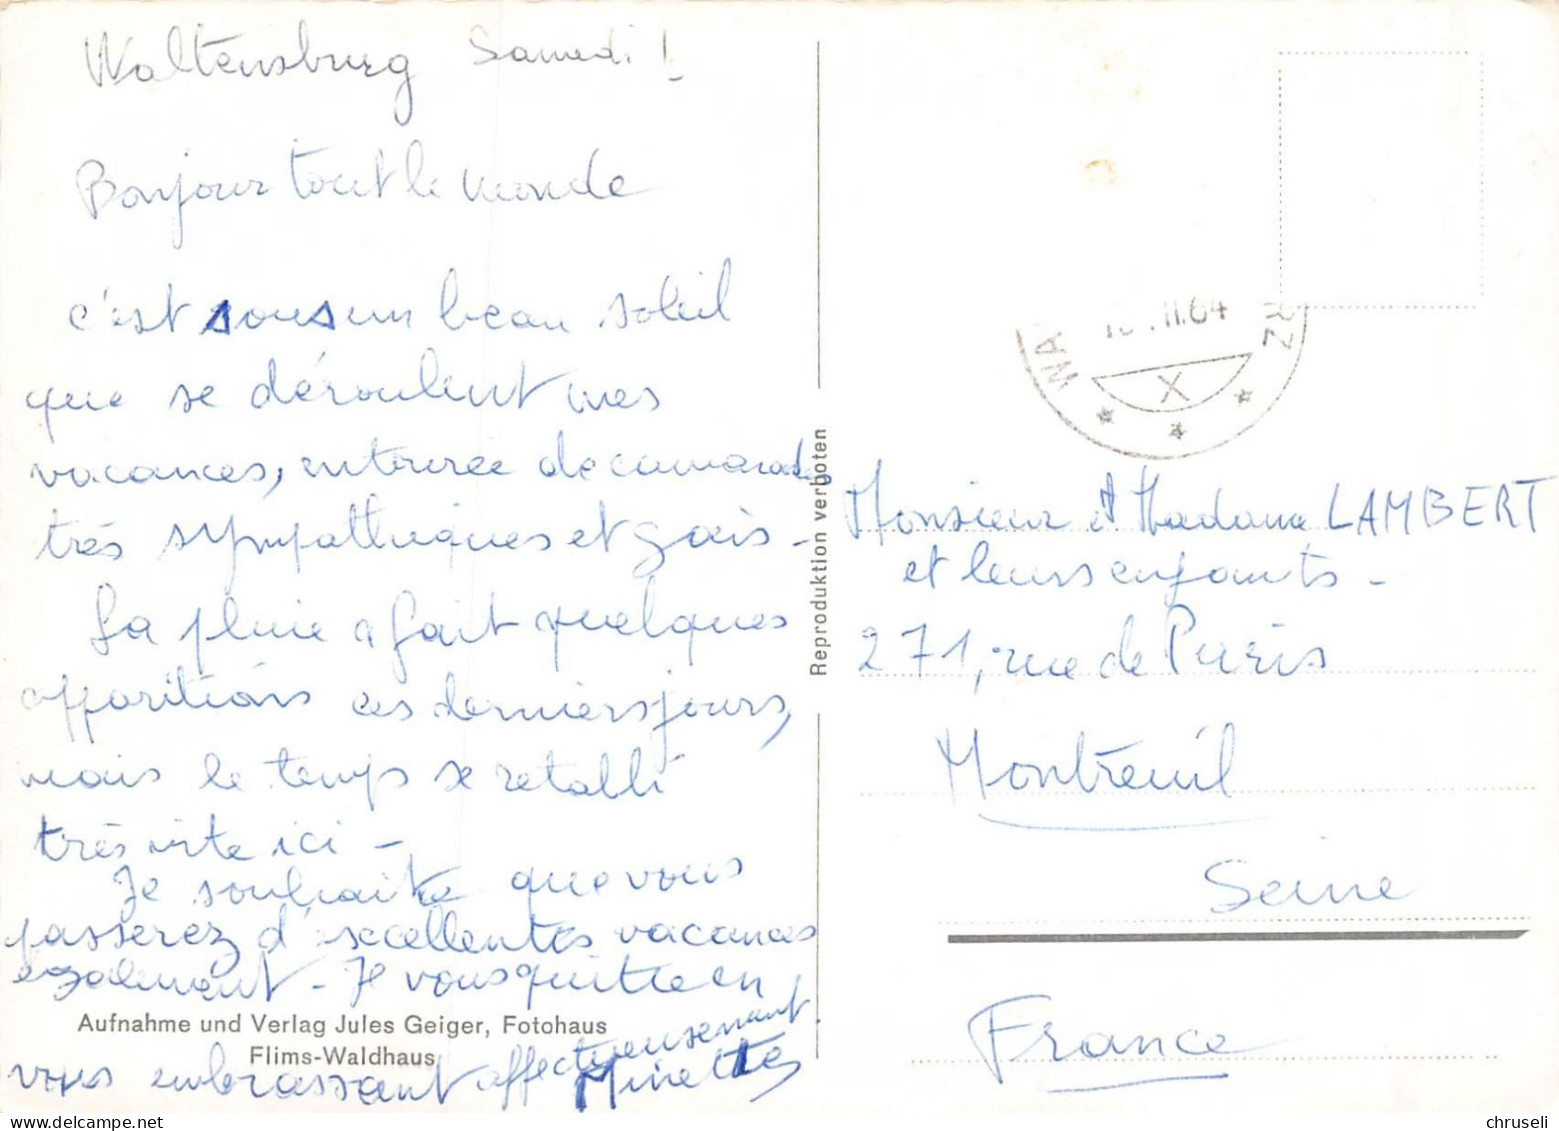 Waltensburg Samedi !
Bonjour tout le monde
c'est sous un beau soleil
que se déroulent mes
vacances, entourée de camarades
très sympathiques et gais -
La pluie a fait quelques
apparitions ces derniers jours,
mais le temps se rétablit
très vite ici -
Je souhaite que vous
passerez d'excellentes vacances
également - Je vous quitte en
vous embrassant affectueusement.
Minette
Aufnahme und Verlag Jules Geiger, Fotohaus
Flims-Waldhaus
Reproduktion verboten
WA
.II.64
RZ
X
Monsieur et Madame LAMBERT
et leurs enfants -
271, rue de Paris
Montreuil
Seine
France
chruseli